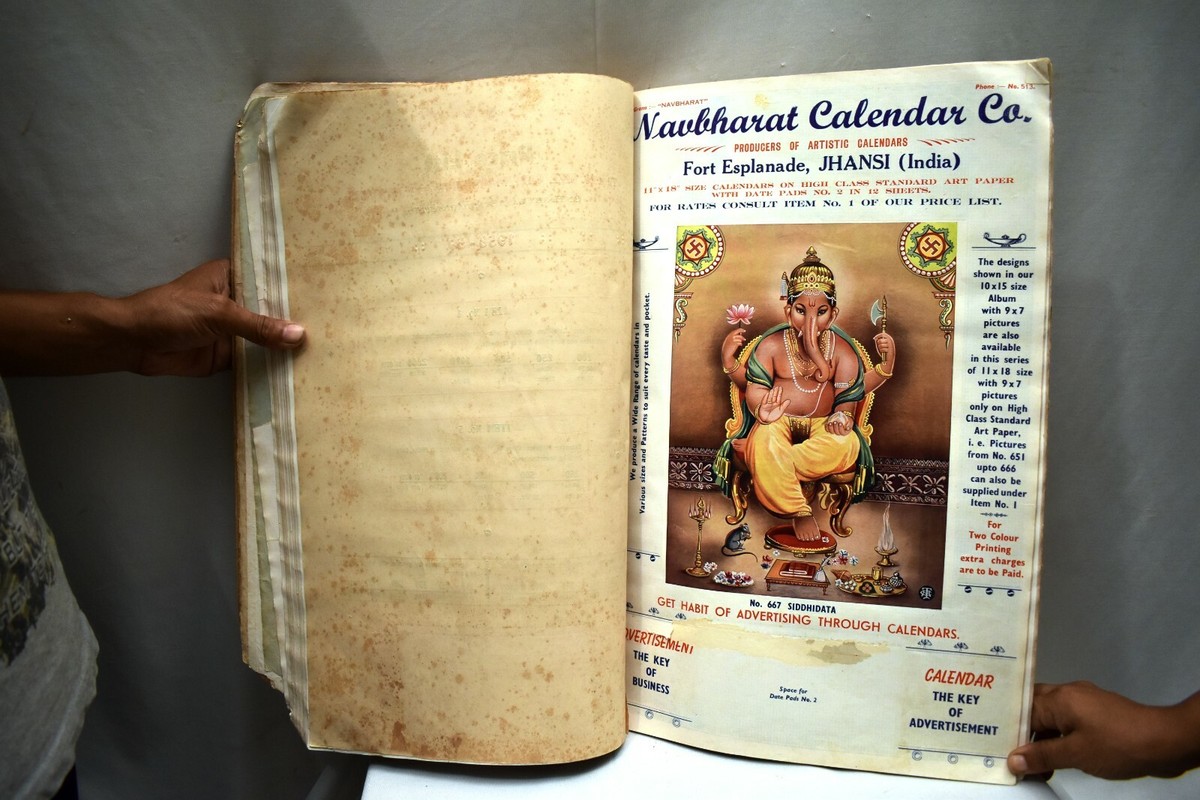 "NAVBHARAT"
Phone :— No. 513.
Navbharat Calendar Co.
PRODUCERS OF ARTISTIC CALENDARS
Fort Esplanade, JHANSI (India)
11"x18" SIZE CALENDARS ON HIGH CLASS STANDARD ART PAPER
WITH DATE PADS NO. 2 IN 12 SHEETS.
FOR RATES CONSULT ITEM No. 1 OF OUR PRICE LIST.
We produce a Wide Range of calendars in
Various sizes and Patterns to suit every taste and pocket.
The designs
shown in our
10x15 size
Album
with 9x7
pictures
are also
available
in this series
of 11x18 size
with 9x7
pictures
only on High
Class Standard
Art Paper,
i. e. Pictures
from No. 651
upto 666
can also be
supplied under
Item No. 1
For
Two Colour
Printing
extra charges
are to be Paid.
No. 667 SIDDHIDATA
GET HABIT OF ADVERTISING THROUGH CALENDARS.
ADVERTISEMENT
THE KEY
OF
BUSINESS
Space for
Date Pads No. 2
CALENDAR
THE KEY
OF
ADVERTISEMENT